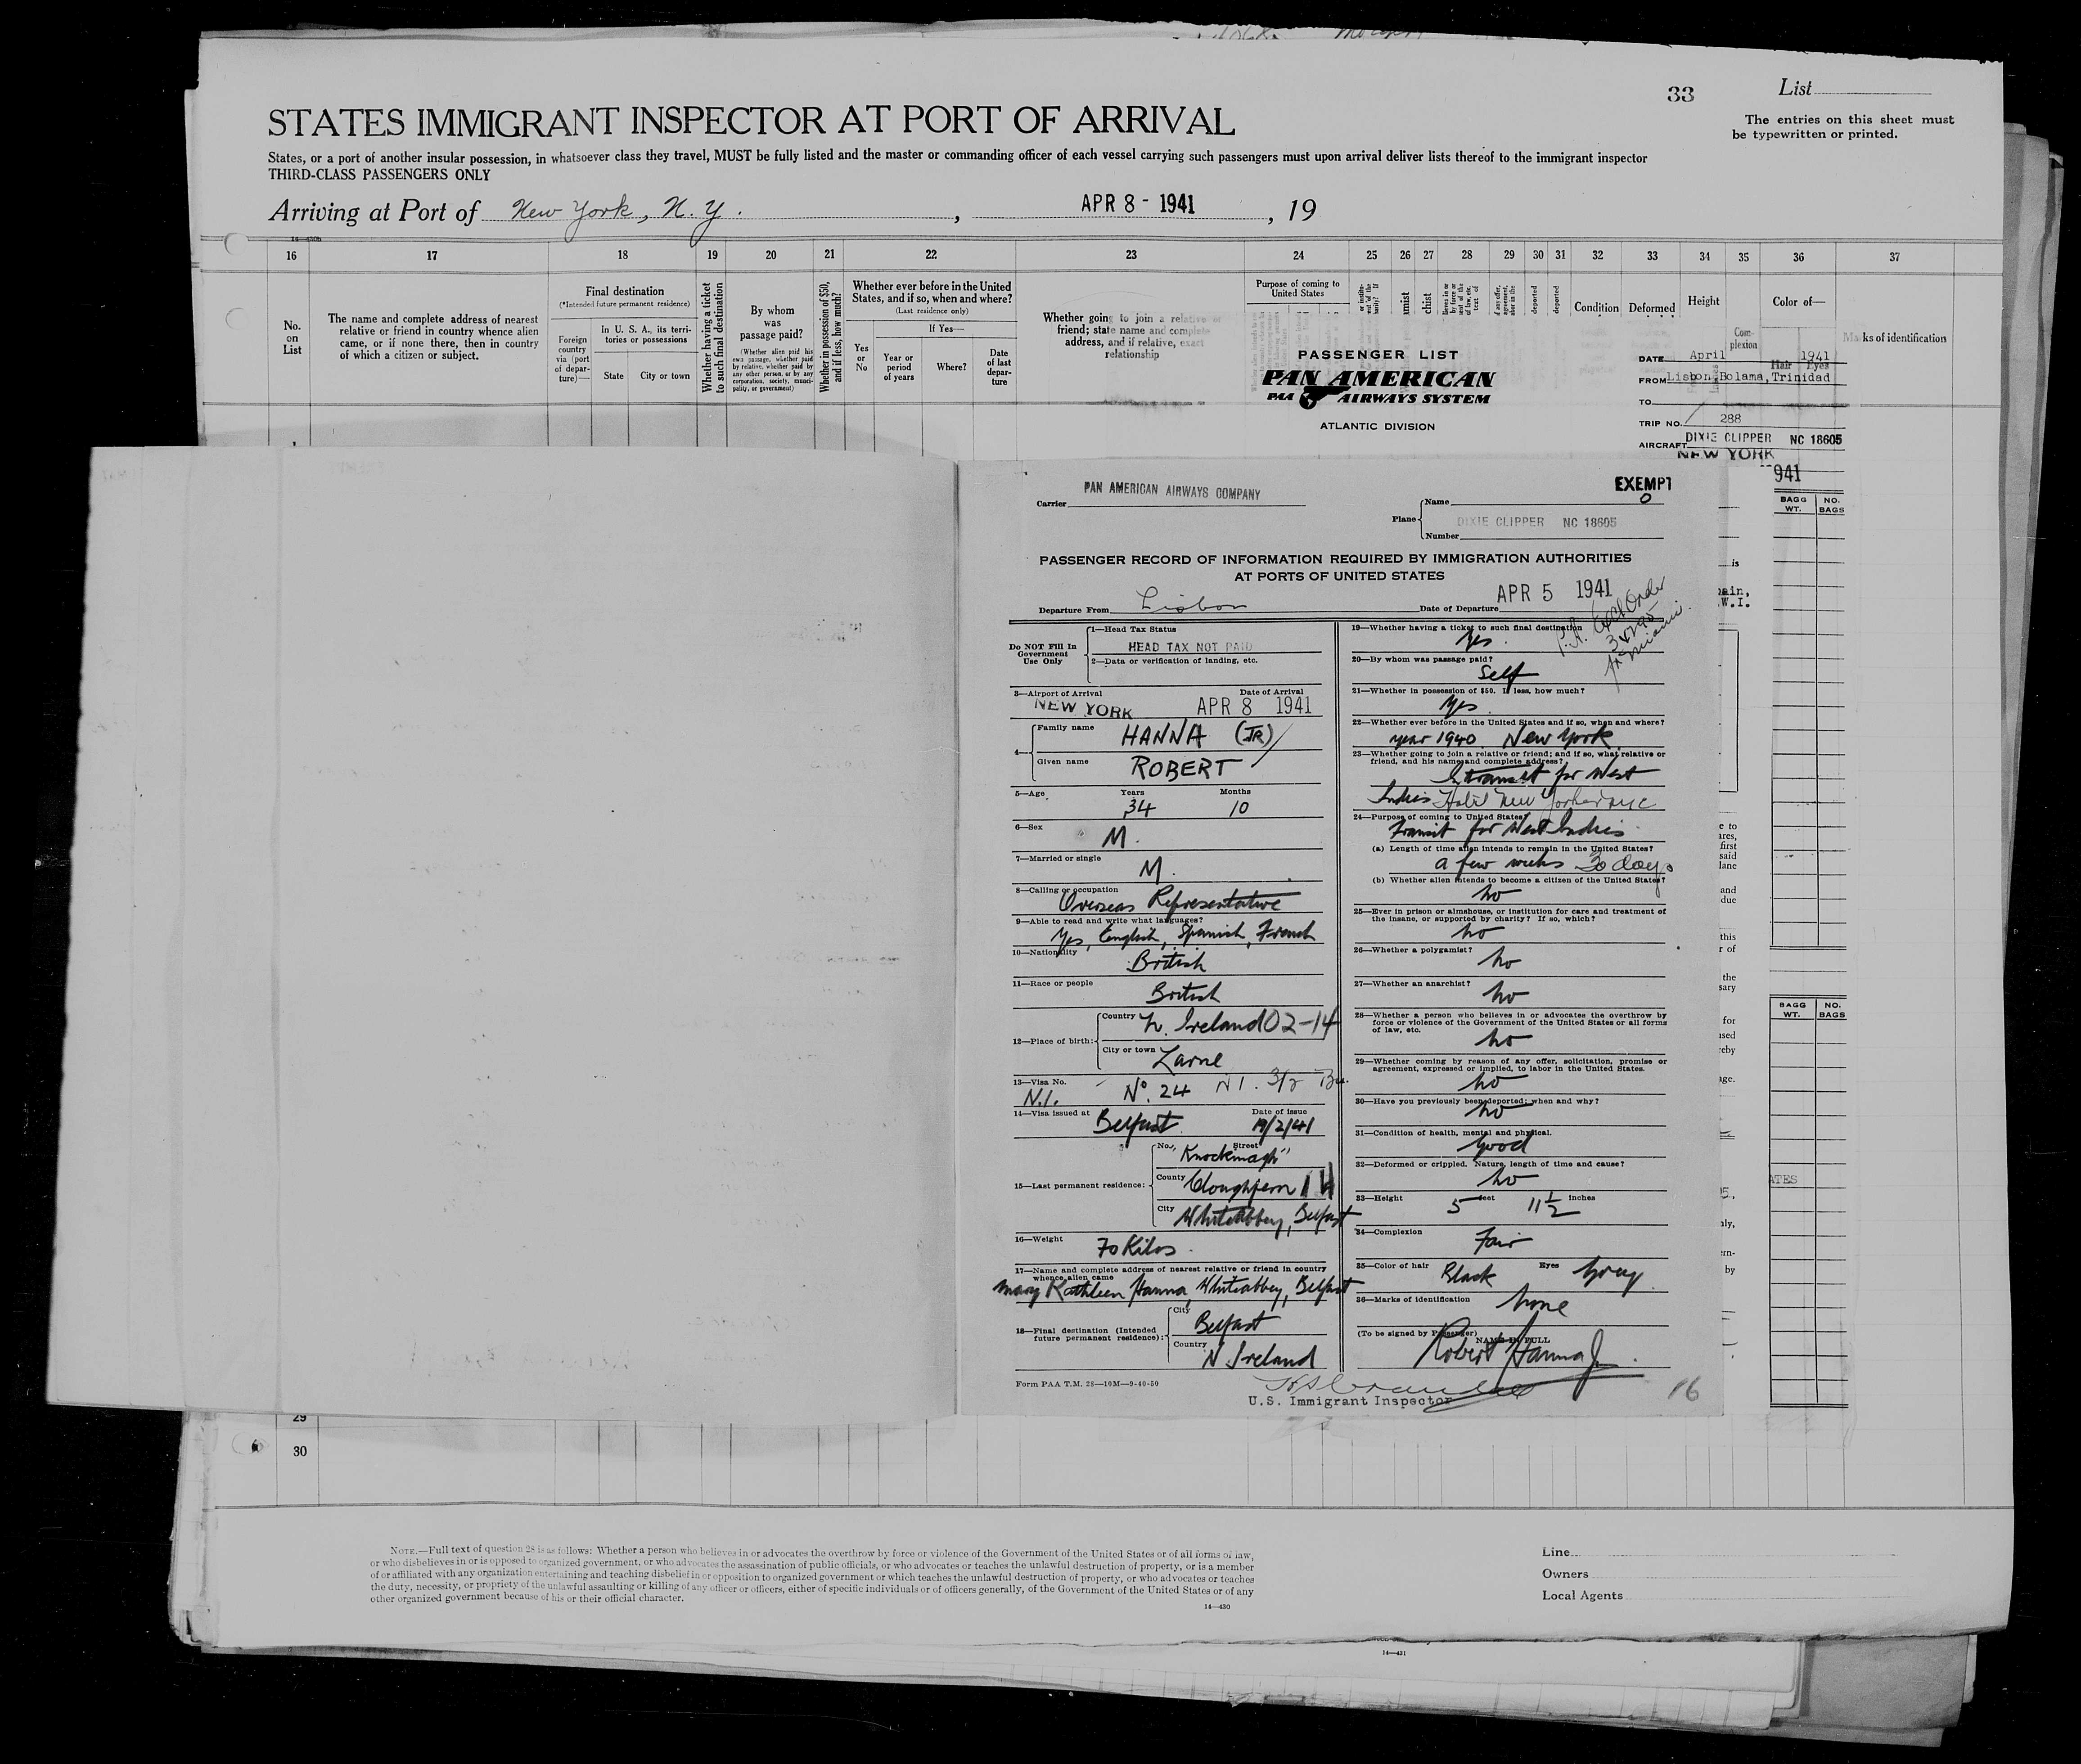 33
List
STATES IMMIGRANT INSPECTOR AT PORT OF ARRIVAL
The entries on this sheet must
be typewritten or printed.
States, or a port of another insular possession, in whatsoever class they travel, MUST be fully listed and the master or commanding officer of each vessel carrying such passengers must upon arrival deliver lists thereof to the immigrant inspector
THIRD-CLASS PASSENGERS ONLY
Arriving at Port of New York, N.Y. , APR 8 - 1941 , 19
16 17 18 19 20 21 22 23 24 25 26 27 28 29 30 31 32 33 34 35 36 37
No.
on
List
The name and complete address of nearest
relative or friend in country whence alien
came, or if none there, then in country
of which a citizen or subject.
Final destination
(*Intended future permanent residence)
Foreign
country
via (port
of depar-
ture)—
In U. S. A., its terri-
tories or possessions
State
City or town
Whether having a ticket
to such final destination
By whom
was
passage paid?
(Whether alien paid his
own passage, whether paid
by relative, whether paid by
any other person, or by any
corporation, society, munici-
pality, or government)
Whether in possession of $50,
and if less, how much?
Whether ever before in the United
States, and if so, when and where?
(Last residence only)
Yes
or
No
If Yes—
Year or
period
of years
Where?
Date
of last
depar-
ture
Whether going to join a relative or
friend; state name and complete
address, and if relative, exact
relationship
Purpose of coming to
United States
Condition
Deformed
Height
Com-
plexion
Color of—
Hair
Eyes
Marks of identification
PASSENGER LIST
PAN AMERICAN
PAA AIRWAYS SYSTEM
ATLANTIC DIVISION
DATE April 1941
FROM Lisbon, Bolama, Trinidad
TO
TRIP NO. 288
AIRCRAFT DIXIE CLIPPER NC 18605
NEW YORK
941
BAGG WT.
NO. BAGS
Carrier PAN AMERICAN AIRWAYS COMPANY
EXEMPT
0
Plane
Name
DIXIE CLIPPER NC 18605
Number
PASSENGER RECORD OF INFORMATION REQUIRED BY IMMIGRATION AUTHORITIES
AT PORTS OF UNITED STATES
Departure From Lisbon Date of Departure APR 5 1941
Do NOT Fill In
Government
Use Only
1—Head Tax Status
HEAD TAX NOT PAID
2—Data or verification of landing, etc.
3—Airport of Arrival Date of Arrival
NEW YORK APR 8 1941
4—
Family name HANNA (JR)
Given name ROBERT
5—Age Years 34 Months 10
6—Sex
M.
7—Married or single
M.
8—Calling or occupation
Overseas Representative
9—Able to read and write what languages?
Yes, English, Spanish, French
10—Nationality
British
11—Race or people
British
12—Place of birth:
Country N. Ireland 02-14
City or town Larne
13—Visa No.
N.I. No. 24 N I. 3/2
14—Visa issued at Date of issue
Belfast 19/2/41
15—Last permanent residence:
No., Street "Knockmagh"
County Cloughfern
City Whiteabbey, Belfast
16—Weight
70 Kilos.
17—Name and complete address of nearest relative or friend in country
whence alien came
Mary Kathleen Hanna, Whiteabbey, Belfast
18—Final destination (Intended
future permanent residence):
City Belfast
Country N. Ireland
Form PAA T.M. 28—10M—9-40-50
19—Whether having a ticket to such final destination
Yes.
20—By whom was passage paid?
Self
21—Whether in possession of $50. If less, how much?
Yes.
22—Whether ever before in the United States and if so, when and where?
year 1940 New York
23—Whether going to join a relative or friend; and if so, what relative or
friend, and his name and complete address?
In transit for West
Indies Hotel New Yorker NYC
24—Purpose of coming to United States?
Transit for West Indies
(a) Length of time alien intends to remain in the United States?
a few weeks 30 days
(b) Whether alien intends to become a citizen of the United States?
no
25—Ever in prison or almshouse, or institution for care and treatment of
the insane, or supported by charity? If so, which?
no
26—Whether a polygamist?
no
27—Whether an anarchist?
no
28—Whether a person who believes in or advocates the overthrow by
force or violence of the Government of the United States or all forms
of law, etc.
no
29—Whether coming by reason of any offer, solicitation, promise or
agreement, expressed or implied, to labor in the United States.
no
30—Have you previously been deported; when and why?
no
31—Condition of health, mental and physical.
good
32—Deformed or crippled. Nature, length of time and cause?
no
33—Height 5 feet 11 1/2 inches
34—Complexion
Fair
35—Color of hair Black Eyes Grey
36—Marks of identification None
(To be signed by Passenger)
NAME IN FULL
Robert Hanna Jr.
U.S. Immigrant Inspector
16
29
30
NOTE.—Full text of question 28 is as follows: Whether a person who believes in or advocates the overthrow by force or violence of the Government of the United States or of all forms of law,
or who disbelieves in or is opposed to organized government, or who advocates the assassination of public officials, or who advocates or teaches the unlawful destruction of property, or is a member
of or affiliated with any organization entertaining and teaching disbelief in or opposition to organized government or which teaches the unlawful destruction of property, or who advocates or teaches
the duty, necessity, or propriety of the unlawful assaulting or killing of any officer or officers, either of specific individuals or of officers generally, of the Government of the United States or of any
other organized government because of his or their official character.
14—430
Line
Owners
Local Agents
14—431